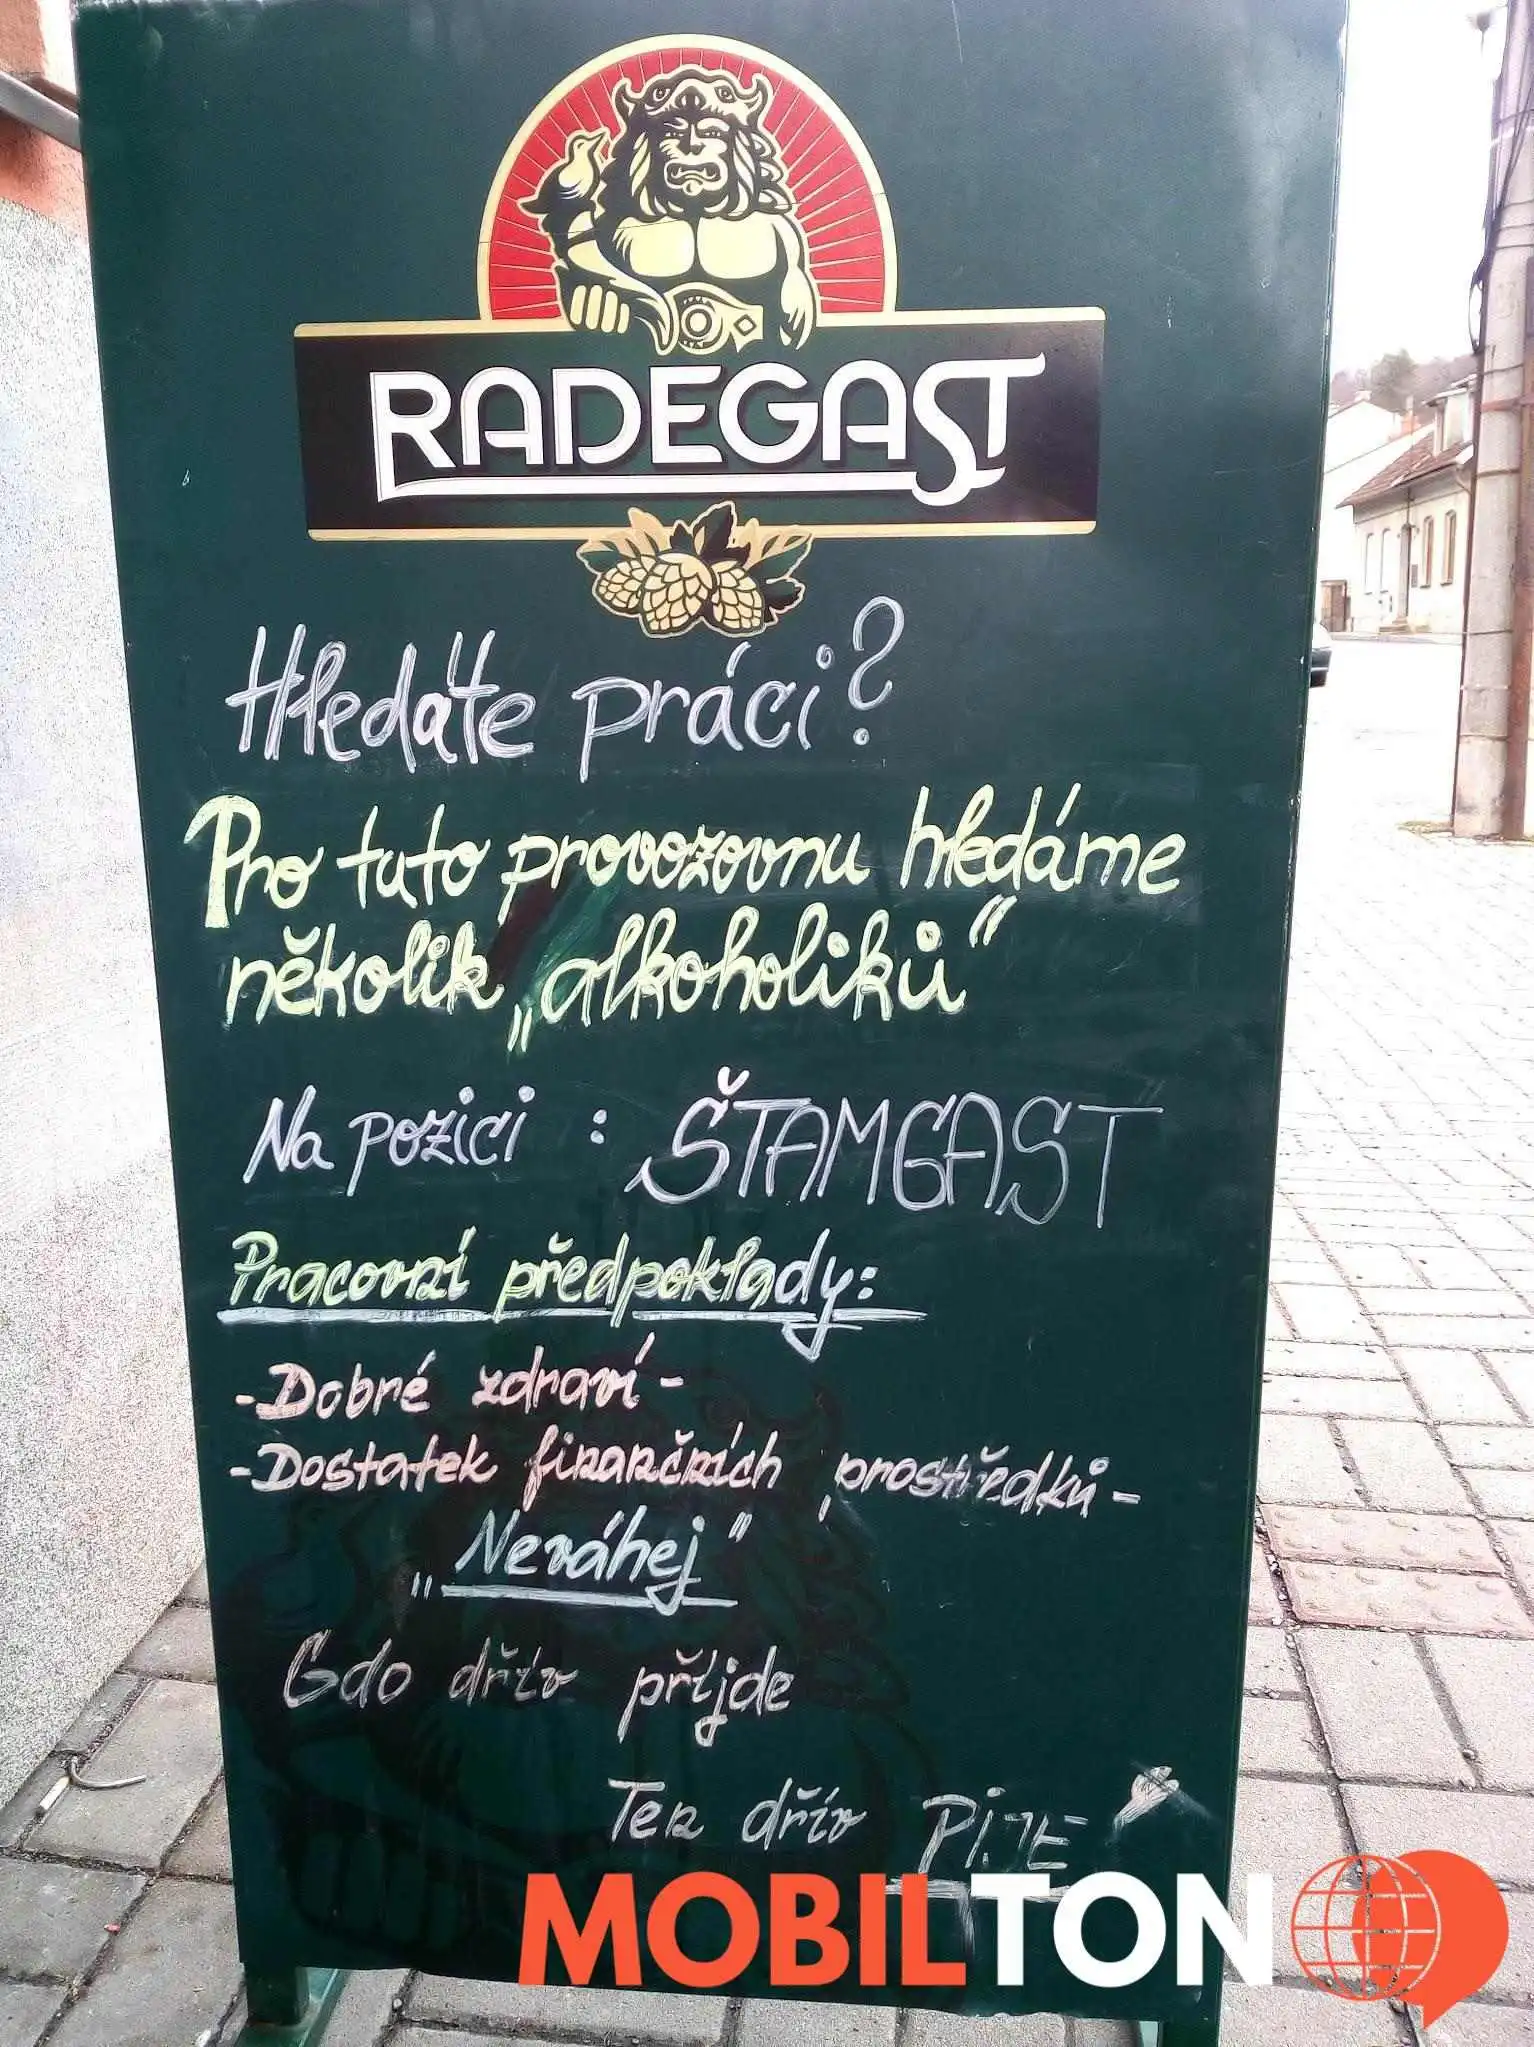 RADEGAST
Hledáte práci?
Pro tuto provozovnu hledáme
několik „alkoholiků"
Na pozici : ŠTAMGAST
Pracovní předpoklady:
-Dobré zdraví-
-Dostatek finančních prostředků-
„Neváhej"
Gdo dřív příjde
Ten dřív PIJE
MOBILTON